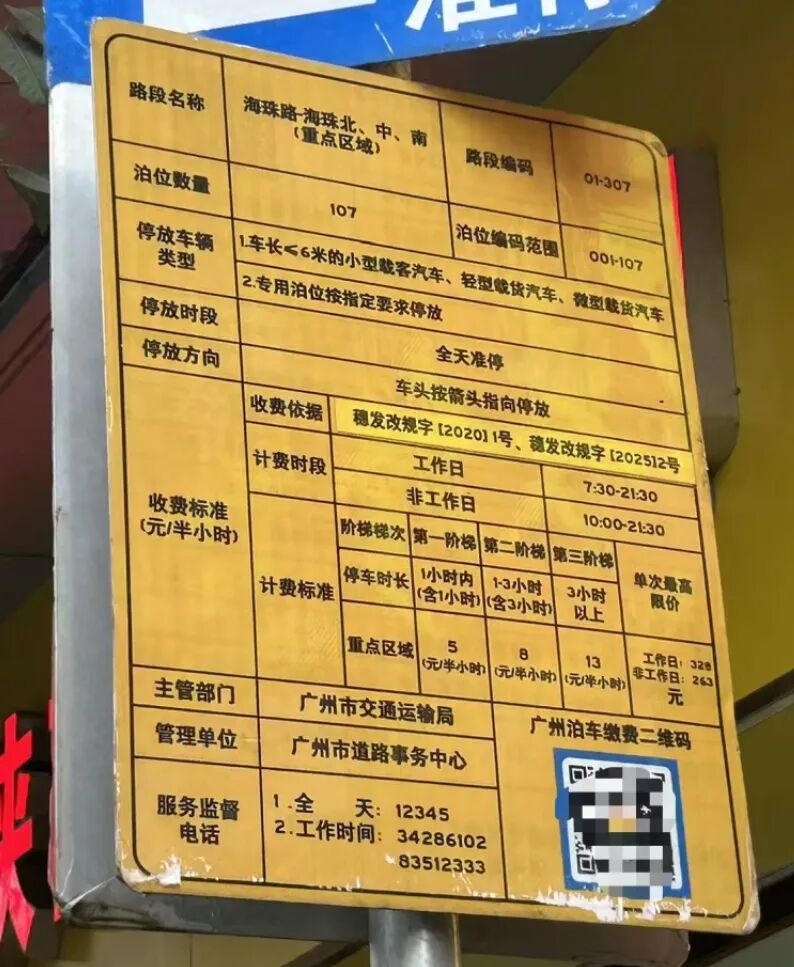 路段名称
海珠路-海珠北、中、南
(重点区域)
路段编码
01-307
泊位数量
107
泊位编码范围
001-107
停放车辆
类型
1.车长≤6米的小型载客汽车、轻型载货汽车、微型载货汽车
2.专用泊位按指定要求停放
停放时段
全天准停
停放方向
车头按箭头指向停放
收费标准
(元/半小时)
收费依据
穗发改规字 [2020] 1号、穗发改规字 [2025]2号
计费时段
工作日
7:30-21:30
非工作日
10:00-21:30
计费标准
阶梯梯次
第一阶梯
第二阶梯
第三阶梯
单次最高
限价
停车时长
1小时内
(含1小时)
1-3小时
(含3小时)
3小时
以上
重点区域
5
(元/半小时)
8
(元/半小时)
13
(元/半小时)
工作日: 328
非工作日: 263
元
主管部门
广州市交通运输局
管理单位
广州市道路事务中心
服务监督
电话
1.全 天: 12345
2.工作时间: 34286102
83512333
广州泊车缴费二维码